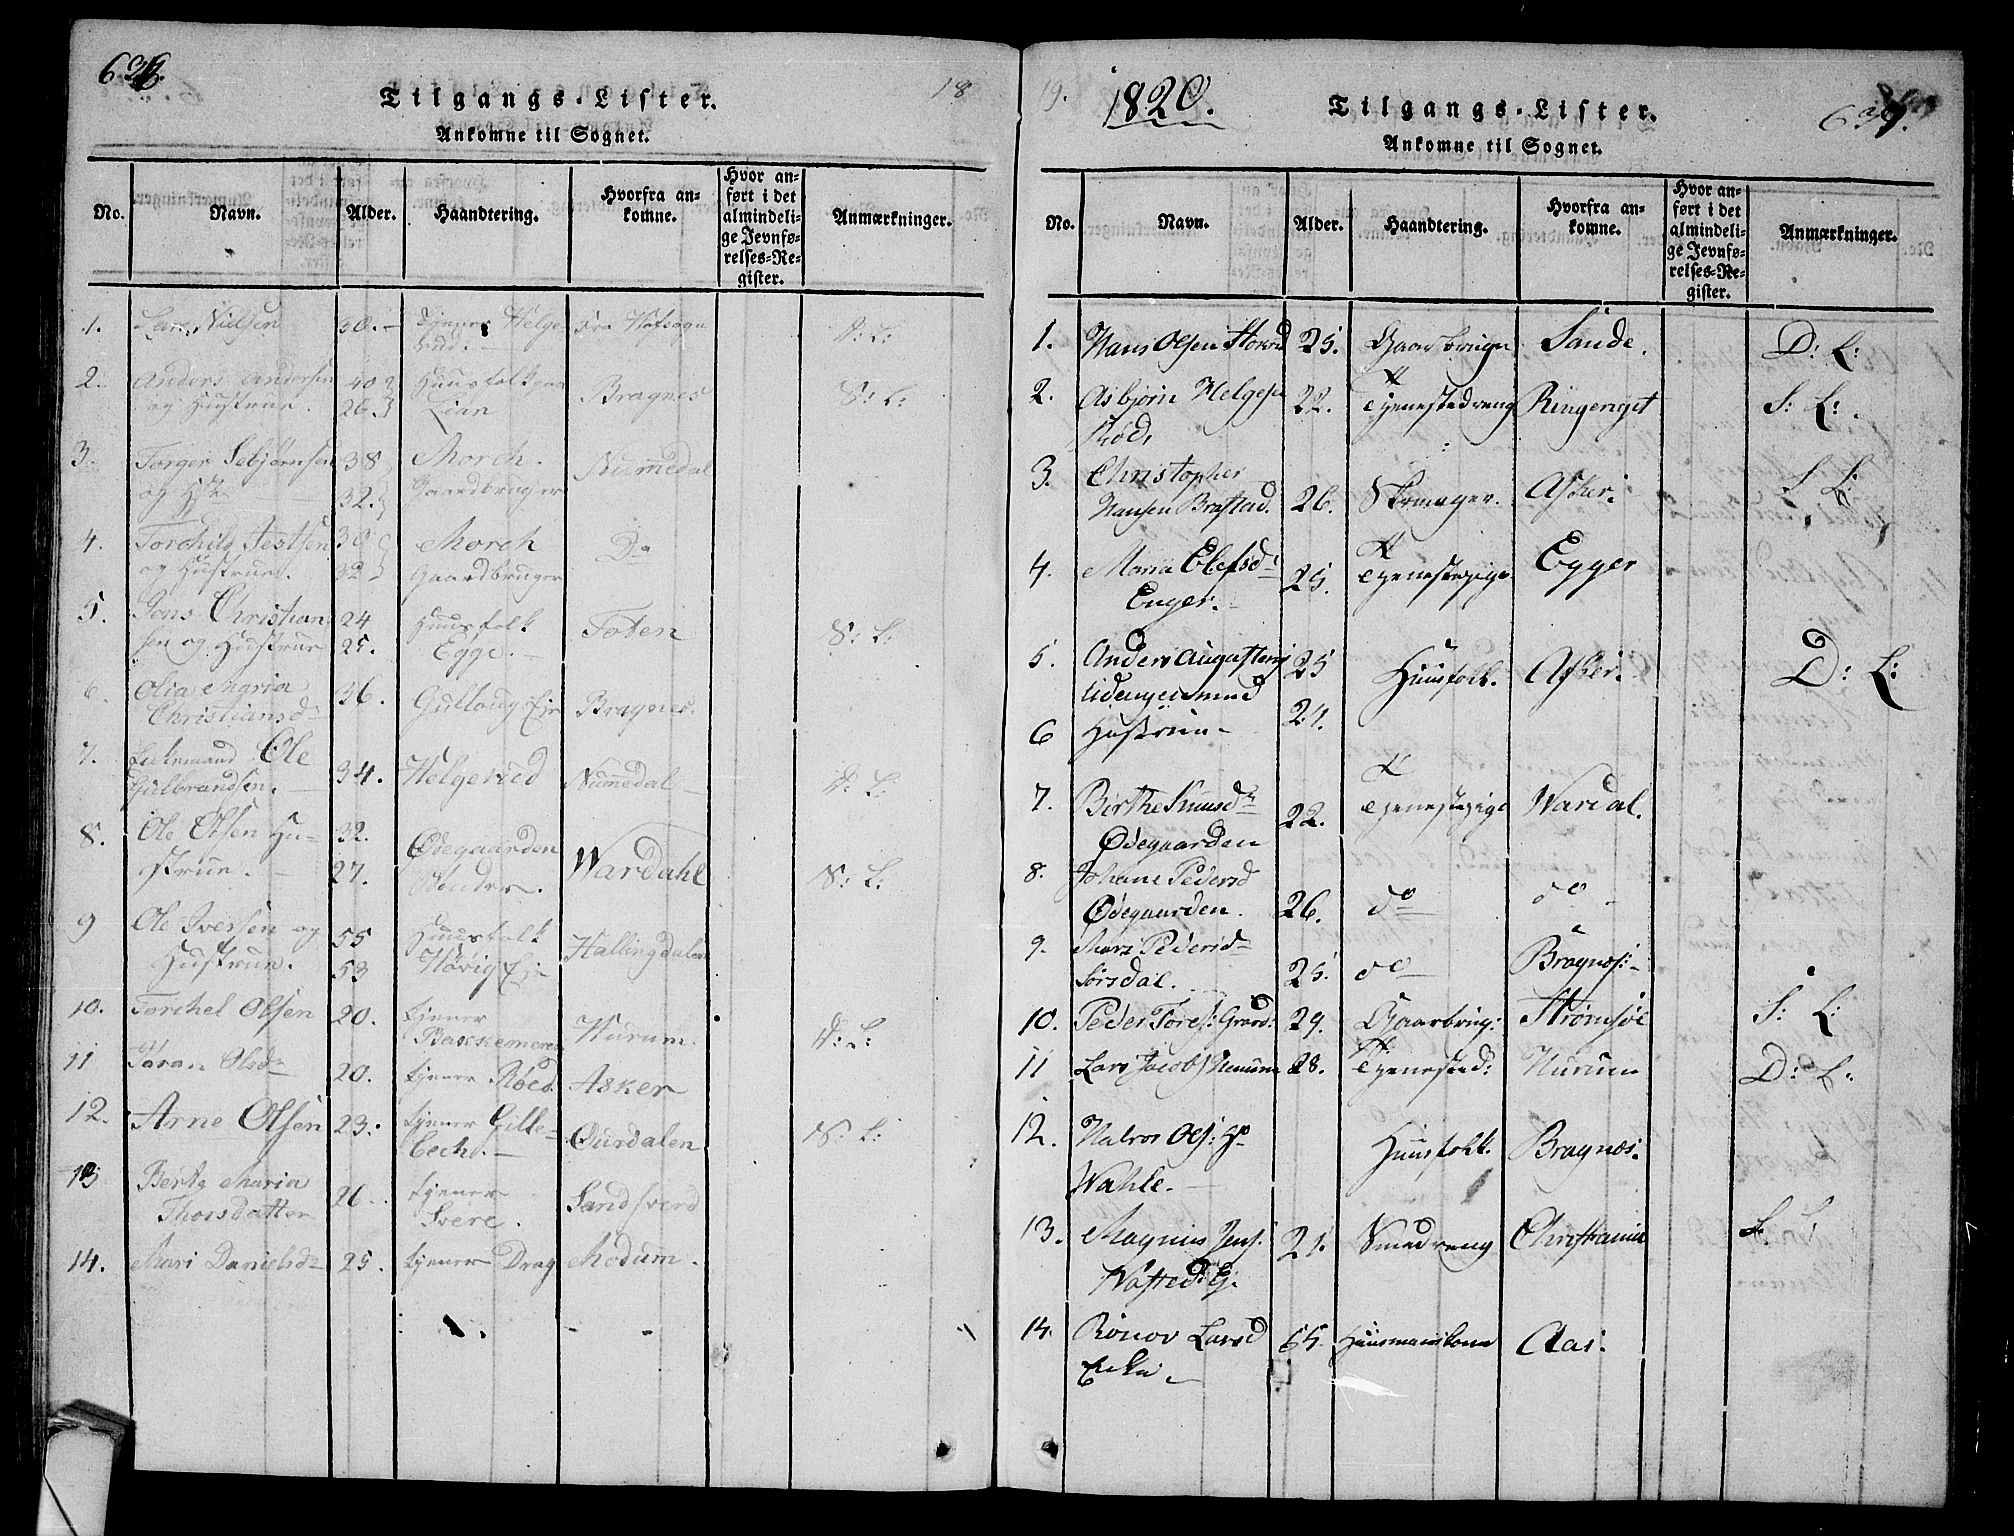 636.
Tilgangs-Lister.
18
Ankomne til Sognet.
No. Navn. Alder. Haandtering. Hvorfra ankomne. Hvor anført i det almindelige Jevnførelses-Register. Anmærkninger.
1. Lars Nielsen 30. Tjener Helge Fra Hofsogn D: L:
rud.
2. Anders Andersen 40 Huusfolk paa Bragnes S: L:
og Hustrue. 26 Lian
3. Torger Sebjørnsen 38 Morch. Nummedal
og Hst 32. Gaardbruger
4. Torchild Jestsen 30 Morch Do
og Hustrue. 32 Gaardbruger
5. Jens Christian 24 Huusfolk Toten S: L:
sen og Hustrue 25. Egge.
6. Olia Maria 36. Gulloug Eje Bragnes.
Christiansd
7. Enkemand Ole 34. Helgerud Nummedal D: L:
Gulbrandsen.
8. Ole Olsen Hu- 32. Ødegaarden Wardahl S: L:
strue. 27. Bonder.
9 Ole Iversen og 55 Huusfolk Hallingdalen
Hustrue. 53 Høvig Eje
10. Torchel Olsen 20. tjener Hurum. D: L:
Bakkemeren
11 Taran Olsd 20. tjener Røed Asker
12. Arne Olsen 23. tjener Gille- Ourdalen S: L:
bech.
13 Berta Maria 26. tjener Sandsverd
Thorsdatter Svere.
14. Mari Danielsd 25. tjener Drag Modum.
19. 1820. Tilgangs-Lister. 637.
Ankomne til Sognet.
No. Navn. Alder. Haandtering. Hvorfra ankomne. Hvor anført i det almindelige Jevnførelses-Register. Anmærkninger.
1. Hans Olsen 25. Gaarbruger Sande. D: L:
2. Asbjørn Helgesen 22. Tjenestedreng Ringeriget S: L:
Rød,
3. Christopher
Hansen Brastad. 26. Skomager. Asker. S L:
4. Maria Olefsd 25. Tjenestepige Egger
Enger.
5. Anders Augustenj 25 Huusfolk. Asker. D: L:
Udenger med 21.
6 Hustrue
7. Birthe Knusd 22. Tjenestepige Wardal.
Ødegaarden
8. Johane Pedersd
Ødegaarden. 26. do do
9. Mari Pedersd
Sørsdal. 25. do Bragnæs:
10. Peder Tores: 29. Gaarbrug: Strømsøe S: L:
11 Lars Jacobs 28. Tjenested: Hurum D: L:
12. Halvor Ols: Huusfolk. Bragnæs.
Wahle.
13. Magnus Jens. 21. Smedreng Christiania S. L:
14. Rønov Larsd 65. Huusmandskone Aas.